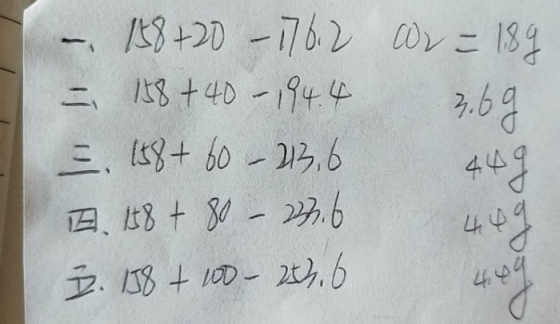 一、158+20-176.2 CO₂=1.8g
二、158+40-194.4 3.6g
三、158+60-213.6 4.4g
四、158+80-233.6 4.4g
五、158+100-253.6 4.4g